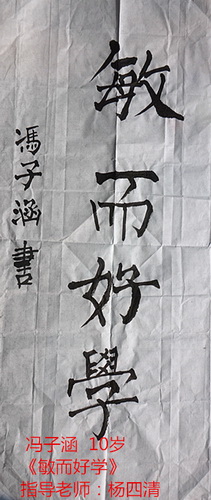 敏而好學
馮子涵書
冯子涵 10岁
《敏而好学》
指导老师：杨四清